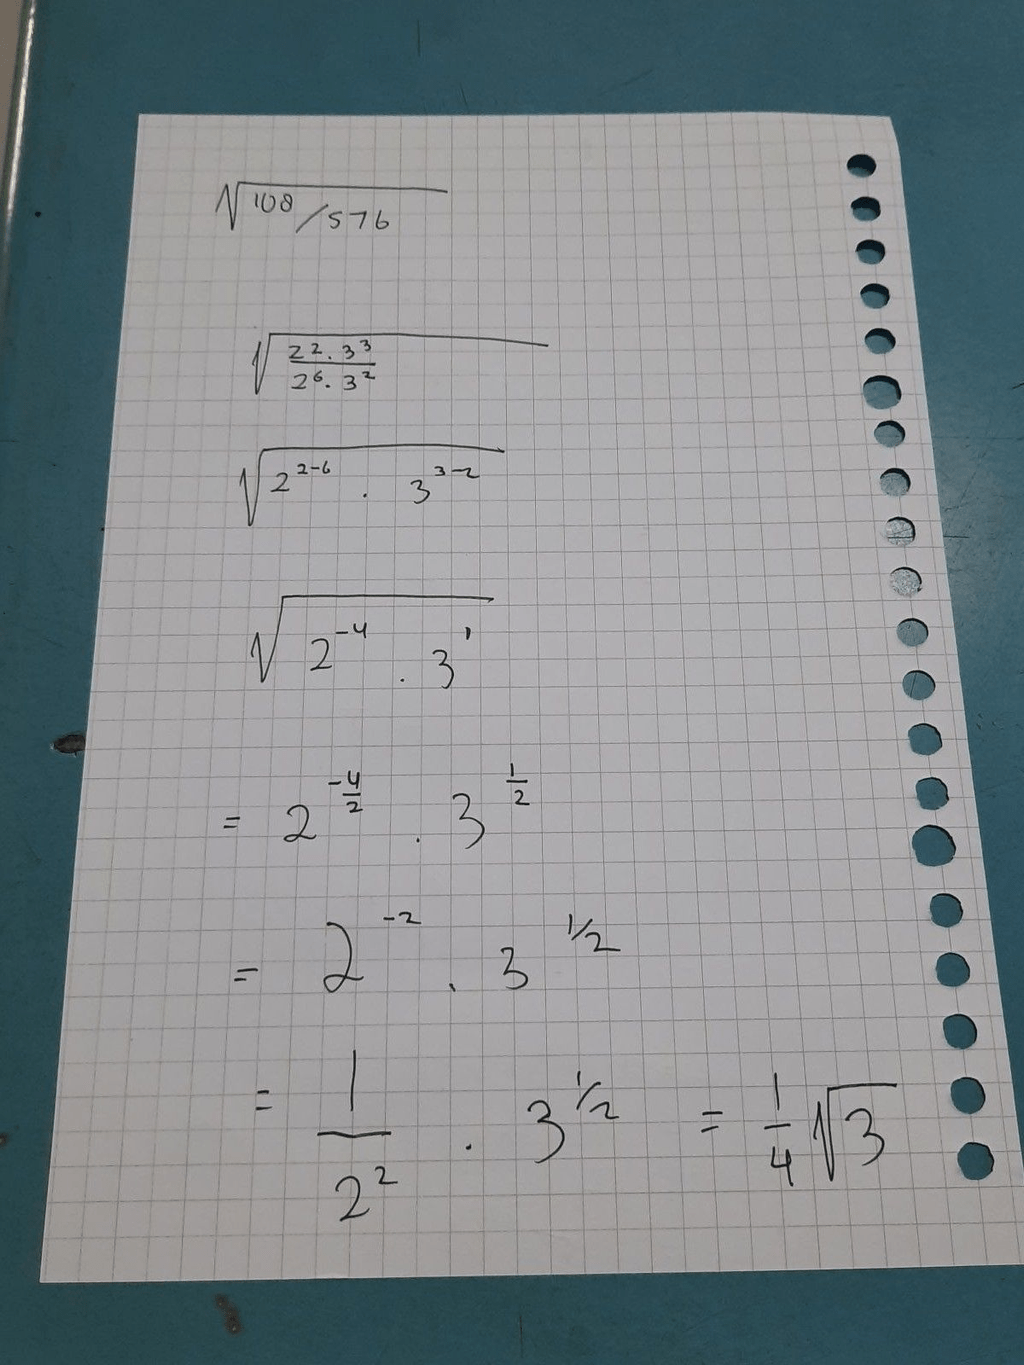 √108/576
√(2².3³ / 2⁶.3²)
√(2²⁻⁶ . 3³⁻²)
√(2⁻⁴ . 3¹)
= 2^(-4/2) . 3^(1/2)
= 2⁻² . 3^(1/2)
= 1/2² . 3^(1/2) = 1/4 √3